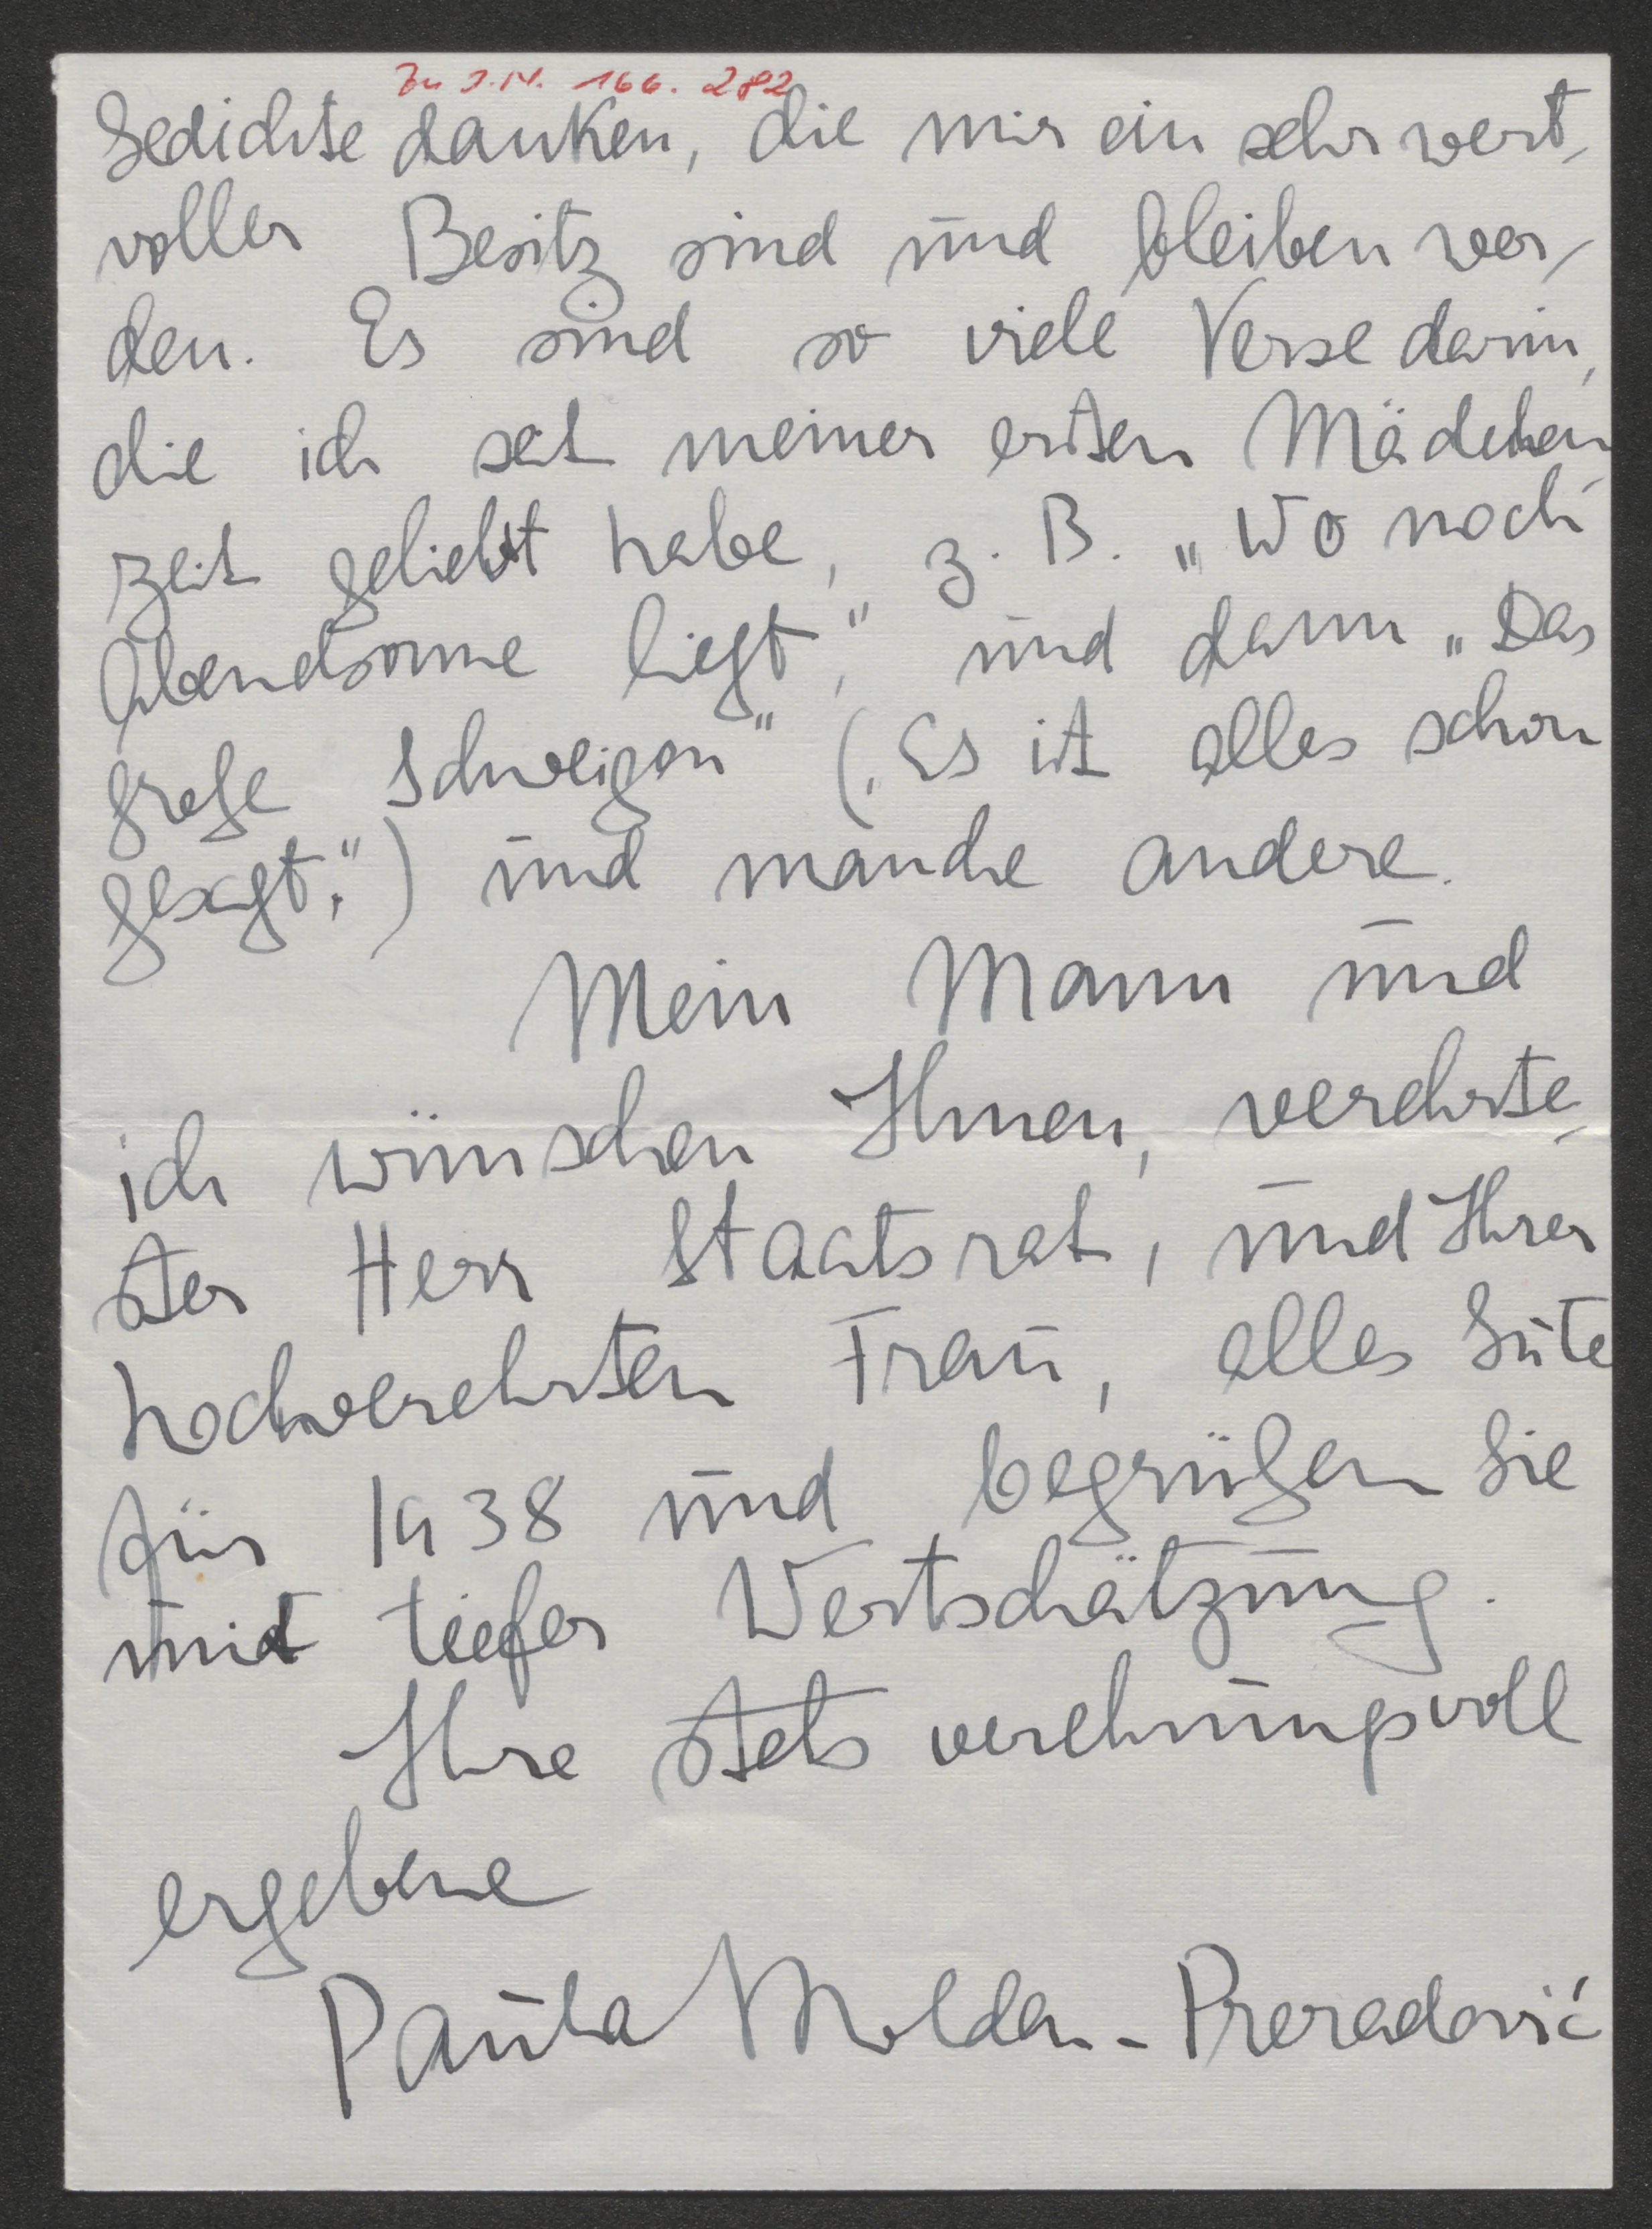 Zu I.N. 166.282
Gedichte danken, die mir ein sehr wert-
voller Besitz sind und bleiben wer-
den. Es sind so viele Verse darin,
die ich seit meiner ersten Mädchen-
zeit geliebt habe, z. B. „Wo noch
Abendsonne liegt," und dann „Das
große Schweigen" („Es ist alles schon
gesagt,") und manche andere.
Mein Mann und
ich wünschen Ihnen, verehrte-
ster Herr Staatsrat, und Ihrer
hochverehrten Frau, alles Gute
für 1938 und begrüßen Sie
mit tiefer Wertschätzung.
Ihre stets verehrungsvoll
ergebene
Paula Molden-Preradović